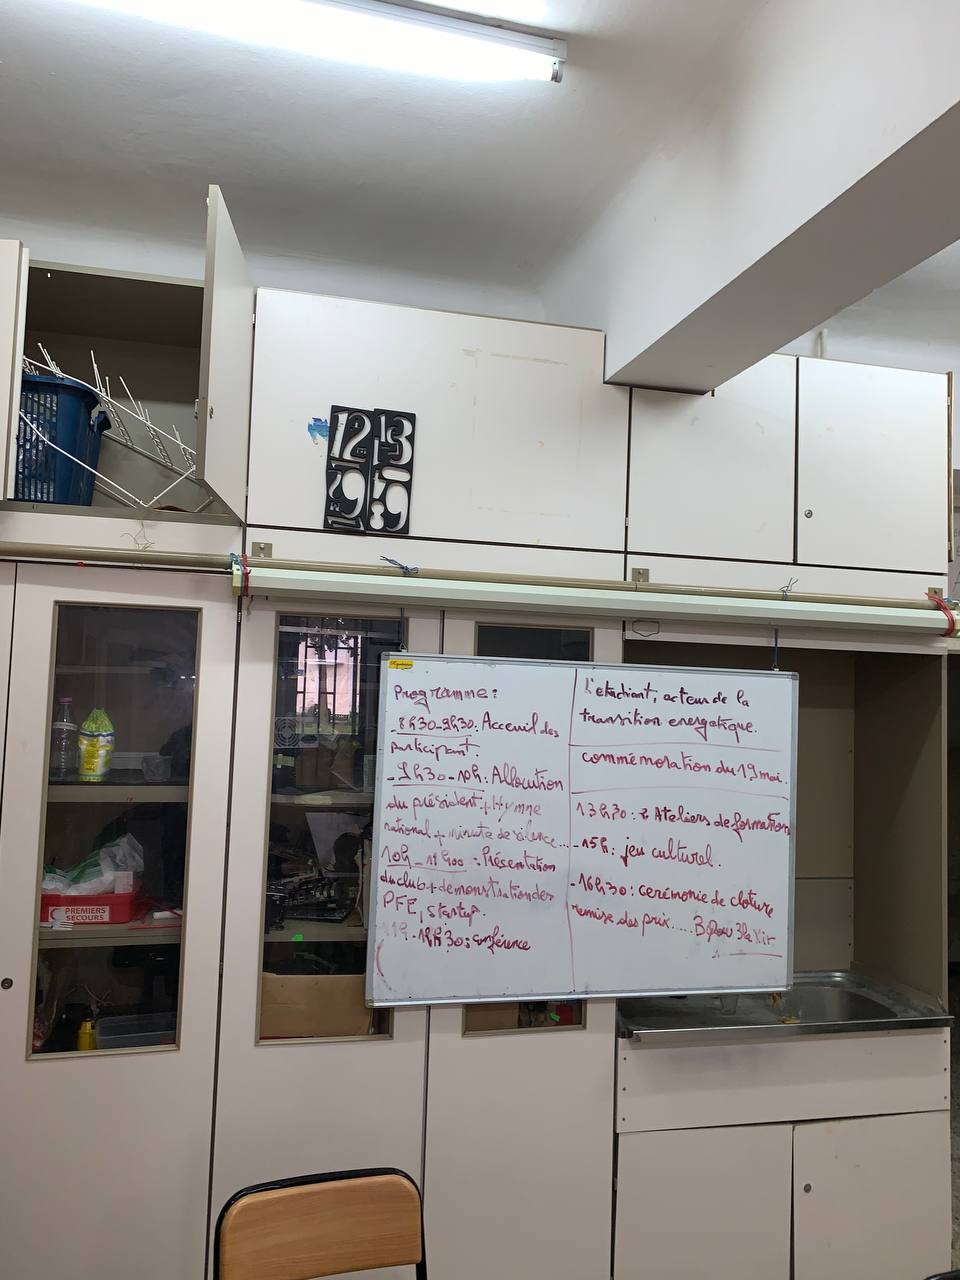 12 13
79 89
PREMIERS
SECOURS
Programme:
8h30-9h30: Acceuil des
participant.
- 9h30-10h: Allocution
du président + Hymne
national + minute de silence...
10h-11h00: Présentation
du club + demonstration des
PFE, startup.
11h-12h30: conférence
L'etudiant, acteur de la
transition energetique.
commémoration du 19 mai.
13h30: 2 Ateliers de formation
- 15h: jeu culturel.
- 16h30: cerémonie de cloture
remise des prix....